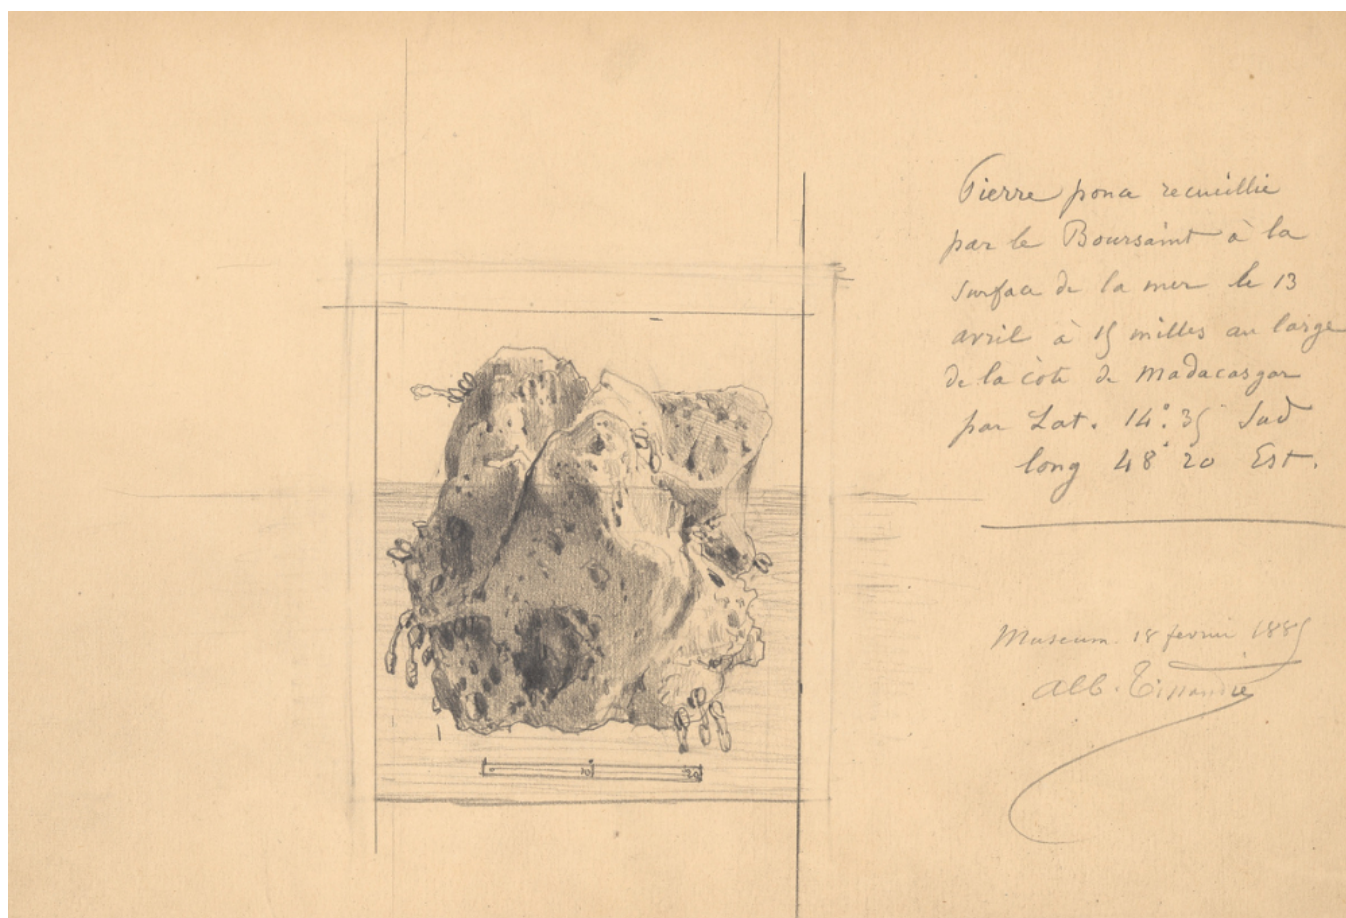 Pierre ponce recueillie
par le Boursaint à la
surface de la mer le 13
avril à 15 milles au large
de la côte de Madacasgar
par Lat. 14° 35 Sud
long 48° 20 Est.
Museum. 18 fevrier 1885
Alb. Tissandier
0 10 20